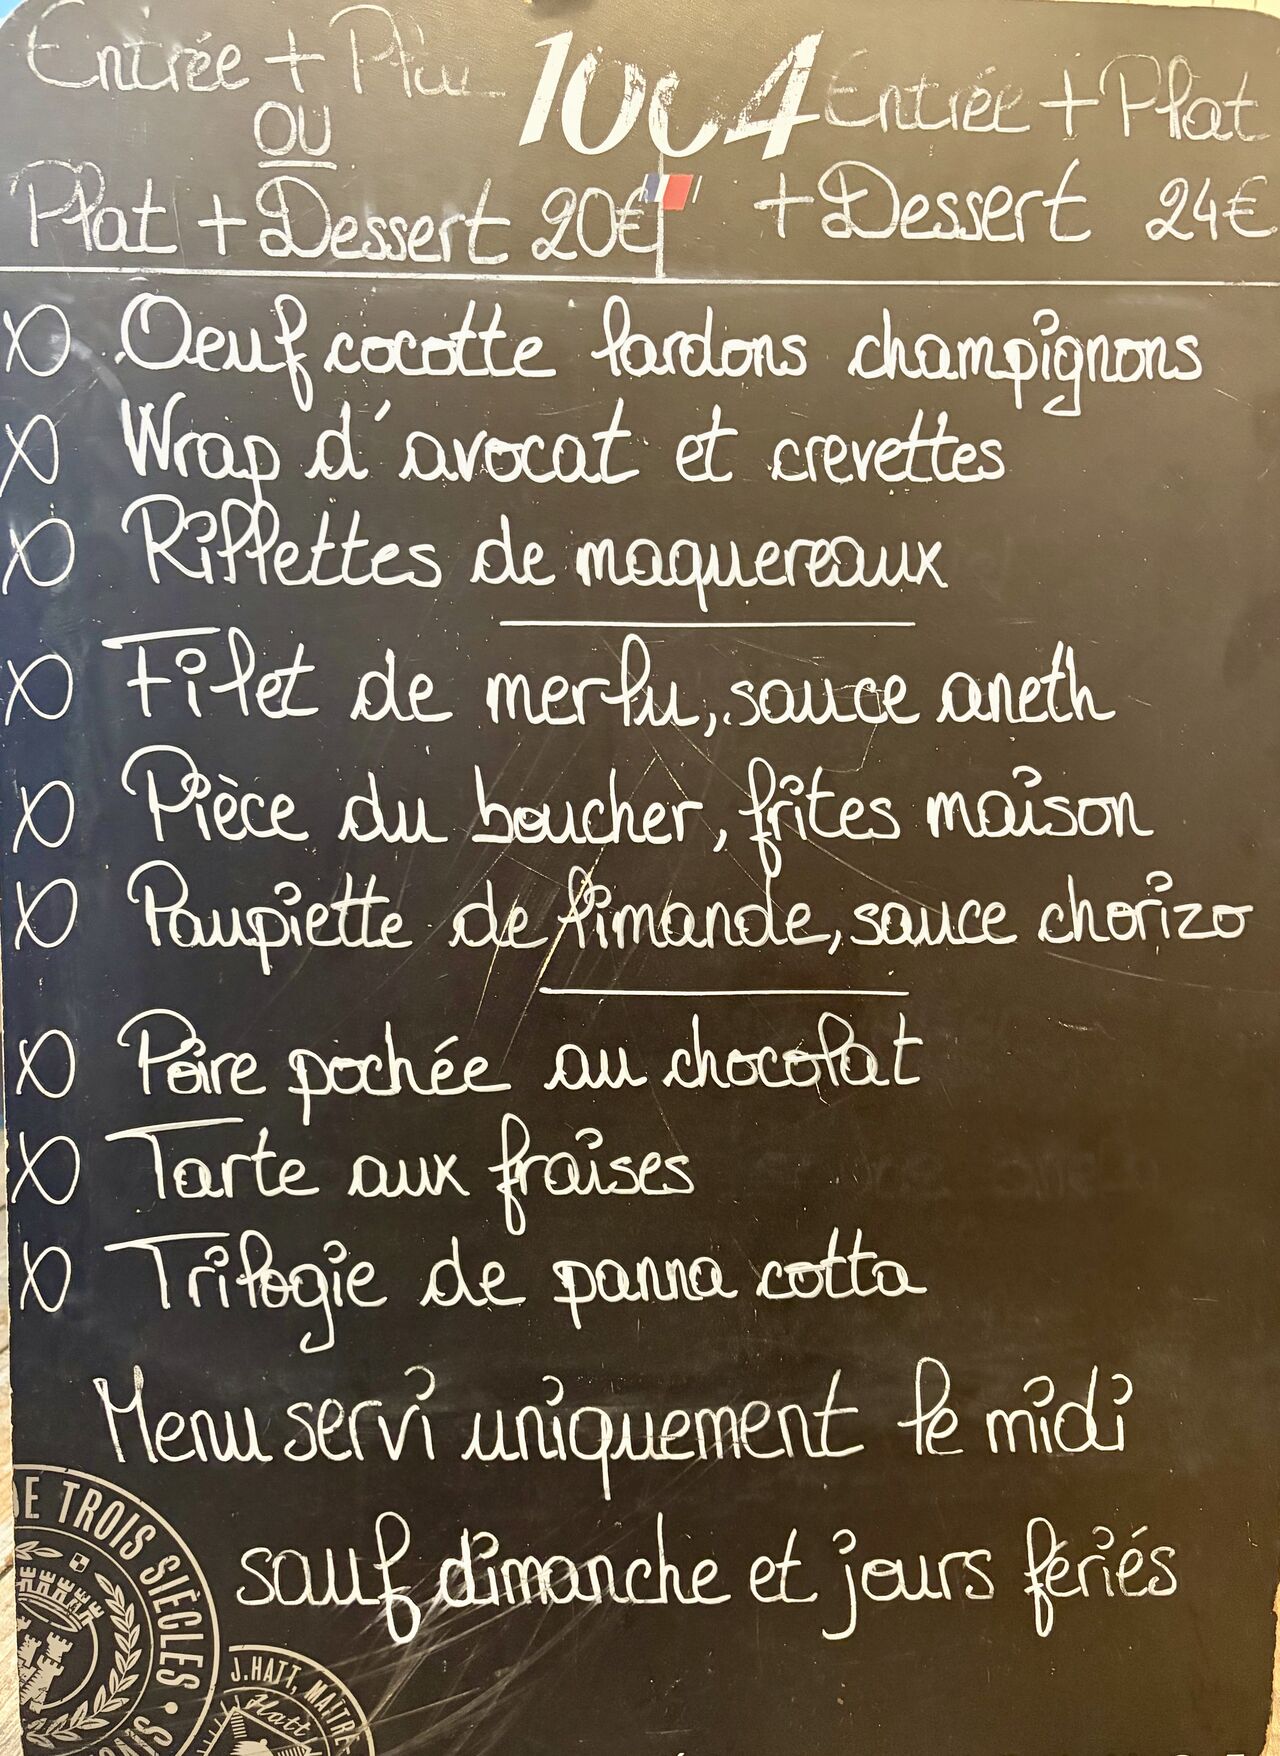 Entrée + Plat
OU
Plat + Dessert 20€
1664
Entrée + Plat
+ Dessert 24€
Oeuf cocotte lardons champignons
Wrap d'avocat et crevettes
Rillettes de maquereaux
Filet de merlu, sauce aneth
Pièce du boucher, frites maison
Paupiette de limande, sauce chorizo
Poire pochée au chocolat
Tarte aux fraises
Trilogie de panna cotta
Menu servi uniquement le midi
sauf dimanche et jours fériés
DE TROIS SIÈCLES •
J. HATT, MAÎTRE
Hatt